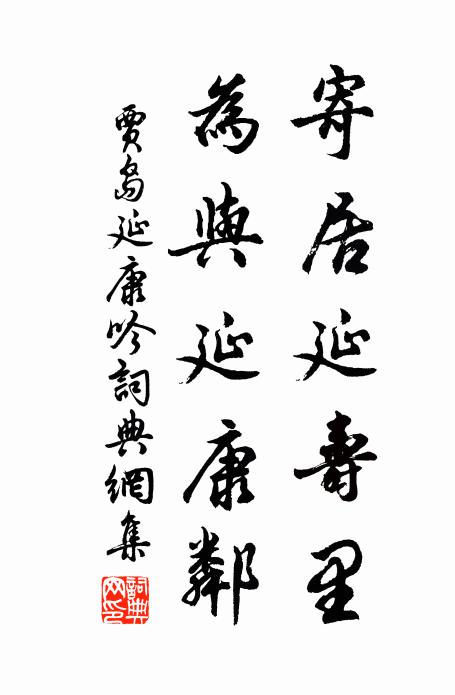 寄居延壽里
為與延康鄰
賈島延康吟詞典網集
詞典網印